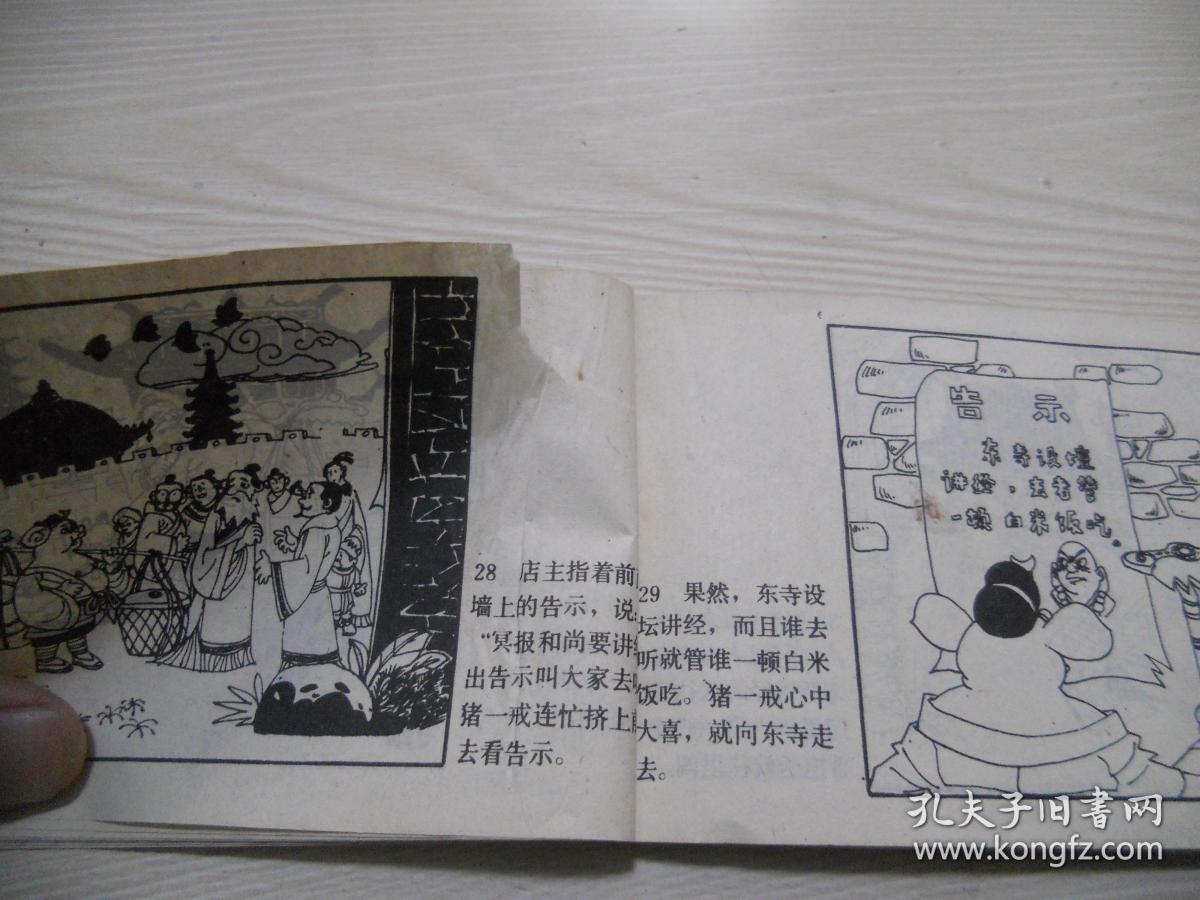 28 店主指着前
墙上的告示，说
“冥报和尚要讲
出告示叫大家去
猪一戒连忙挤上
去看告示。
29 果然，东寺设
坛讲经，而且谁去
听就管谁一顿白米
饭吃。猪一戒心中
大喜，就向东寺走
去。
告示
东寺设坛
讲经，去者管
一顿白米饭吃。
孔夫子旧书网
www.kongfz.com